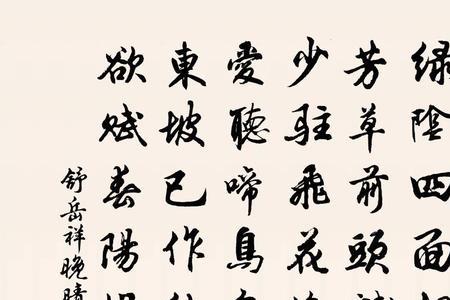 绿陰四面
芳草前頭
少駐飛花
愛聽啼鳥
東坡已作
欲赋春陽
舒岳祥晚晴